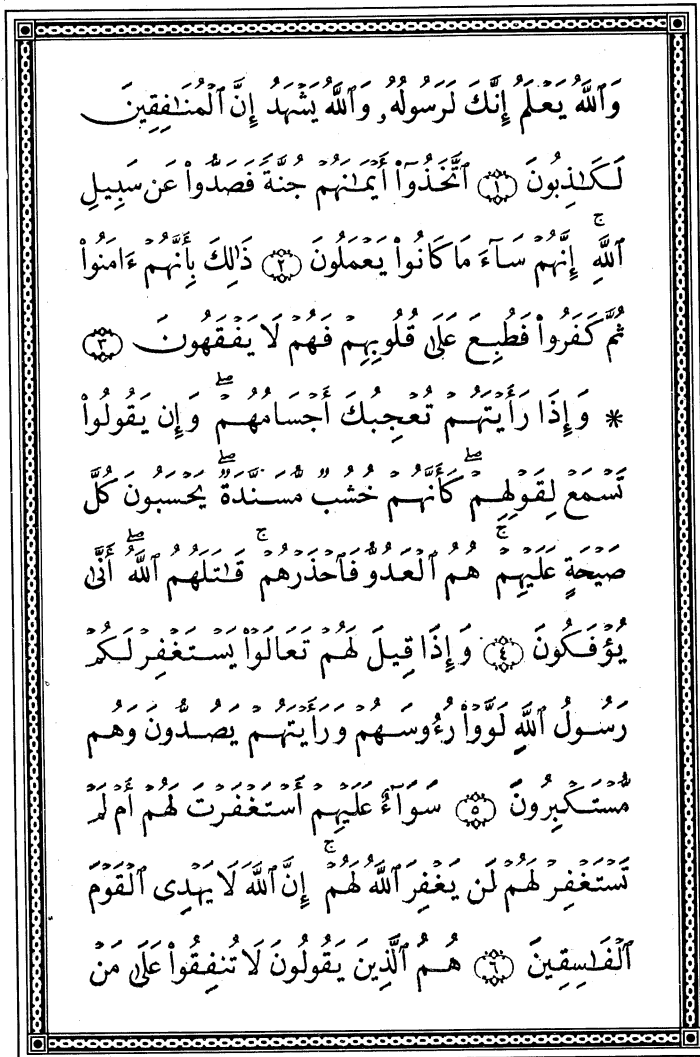 وَٱللَّهُ يَعۡلَمُ إِنَّكَ لَرَسُولُهُۥ وَٱللَّهُ يَشۡهَدُ إِنَّ ٱلۡمُنَٰفِقِينَ
لَكَٰذِبُونَ ﴿١﴾ ٱتَّخَذُوٓاْ أَيۡمَٰنَهُمۡ جُنَّةٗ فَصَدُّواْ عَن سَبِيلِ
ٱللَّهِۚ إِنَّهُمۡ سَآءَ مَا كَانُواْ يَعۡمَلُونَ ﴿٢﴾ ذَٰلِكَ بِأَنَّهُمۡ ءَامَنُواْ
ثُمَّ كَفَرُواْ فَطُبِعَ عَلَىٰ قُلُوبِهِمۡ فَهُمۡ لَا يَفۡقَهُونَ ﴿٣﴾
* وَإِذَا رَأَيۡتَهُمۡ تُعۡجِبُكَ أَجۡسَامُهُمۡۖ وَإِن يَقُولُواْ
تَسۡمَعۡ لِقَوۡلِهِمۡۖ كَأَنَّهُمۡ خُشُبٞ مُّسَنَّدَةٞۖ يَحۡسَبُونَ كُلَّ
صَيۡحَةٍ عَلَيۡهِمۡۚ هُمُ ٱلۡعَدُوُّ فَٱحۡذَرۡهُمۡۚ قَٰتَلَهُمُ ٱللَّهُۖ أَنَّىٰ
يُؤۡفَكُونَ ﴿٤﴾ وَإِذَا قِيلَ لَهُمۡ تَعَالَوۡاْ يَسۡتَغۡفِرۡ لَكُمۡ
رَسُولُ ٱللَّهِ لَوَّوۡاْ رُءُوسَهُمۡ وَرَأَيۡتَهُمۡ يَصُدُّونَ وَهُم
مُّسۡتَكۡبِرُونَ ﴿٥﴾ سَوَآءٌ عَلَيۡهِمۡ أَسۡتَغۡفَرۡتَ لَهُمۡ أَمۡ لَمۡ
تَسۡتَغۡفِرۡ لَهُمۡ لَن يَغۡفِرَ ٱللَّهُ لَهُمۡۚ إِنَّ ٱللَّهَ لَا يَهۡدِي ٱلۡقَوۡمَ
ٱلۡفَٰسِقِينَ ﴿٦﴾ هُمُ ٱلَّذِينَ يَقُولُونَ لَا تُنفِقُواْ عَلَىٰ مَنۡ